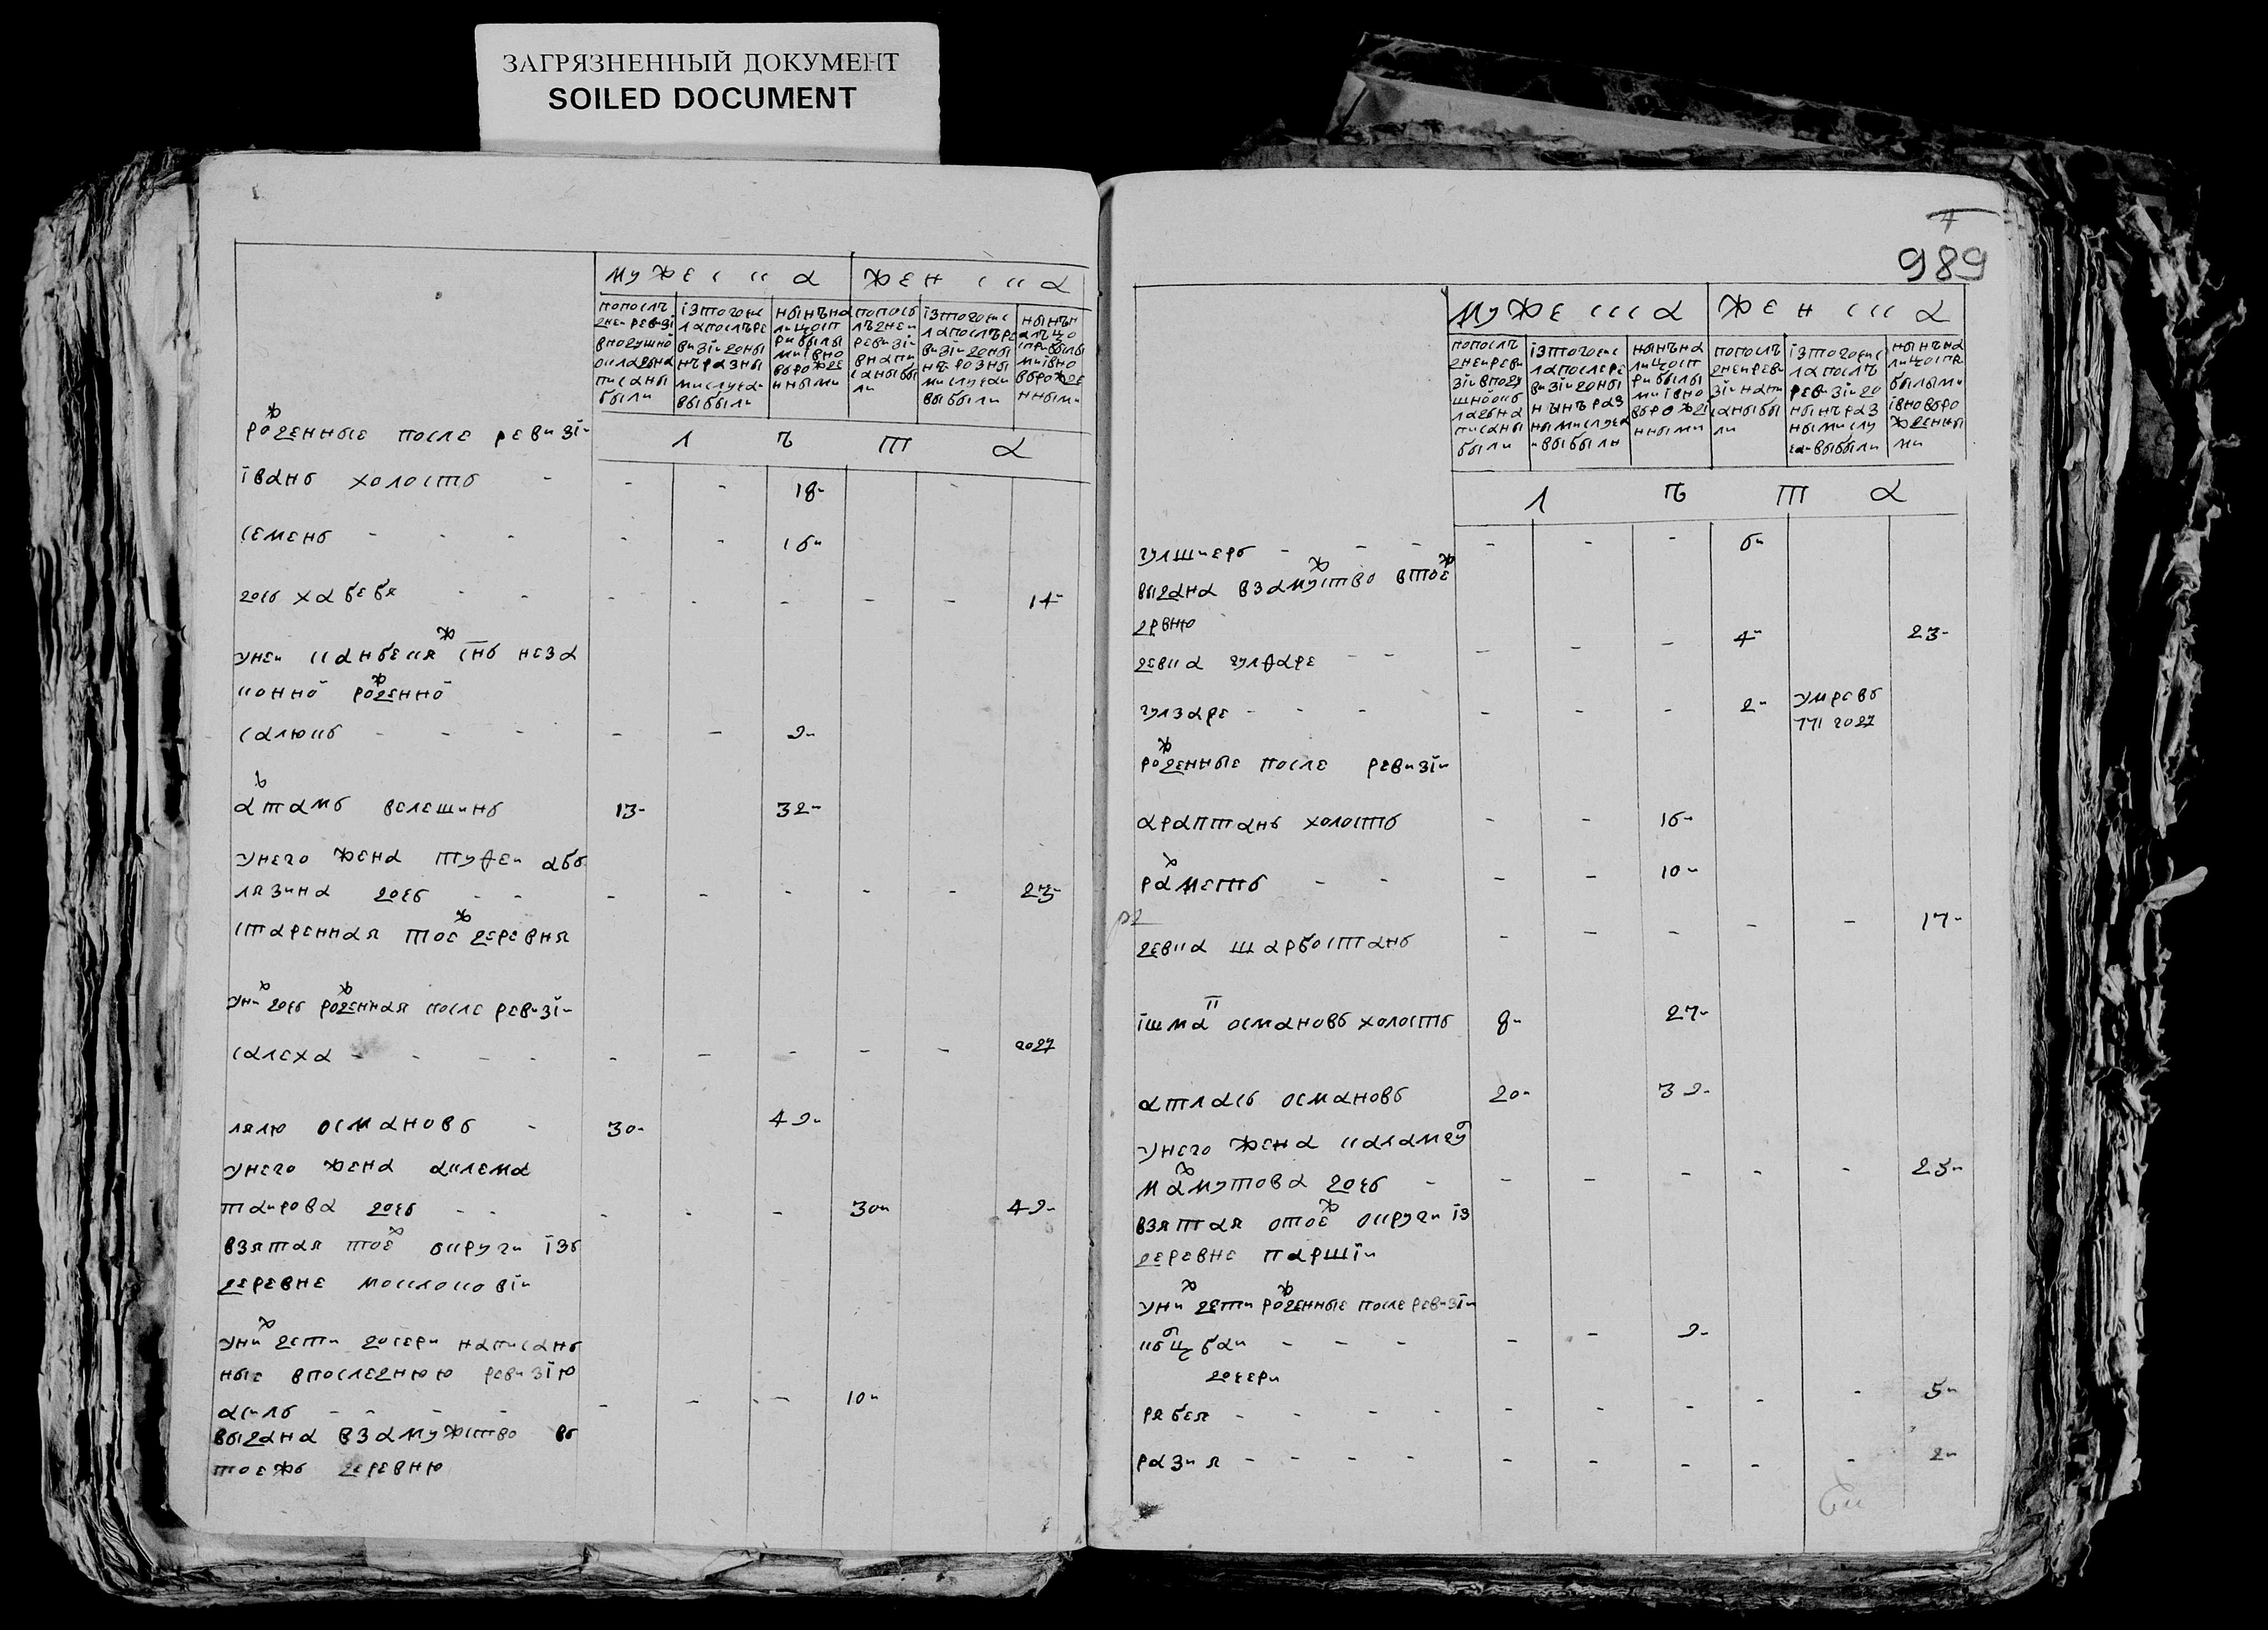 ЗАГРЯЗНЕННЫЙ ДОКУМЕНТ
SOILED DOCUMENT
мужеска женска
попослѣ
дней ревизі
вподушно
окладъ на
писаны
были
ізтогочис
ла послѣ ре
визіи до ны
нѣ разны
ми случаи
выбыли
нынѣ на
лицо сп
рибылы
ми і вно
ворожде
нными
попосл
ѣдней
ревизіи
внапи
саны бы
ли
ізтогочис
ла послѣ ре
визіи до ны
нѣ розны
ми случаи
выбыли
нынѣ н
а лѣцо
сприбылы
ми і вно
ворожде
нными
лѣта
рожденные после ревизі
іванъ холостъ - - - 18- -
семенъ - - - - - 16-
дочь хабебя - - - - - - - - 14-
унеи канбекя снъ неза
конно рожденно
салюкъ - - - - - 9-
атамъ велешинъ 13- 32-
унего жена туфеи абъ
лязина дочь - - - - - - - 23-
старенная тоежъ деревня
унихъ дочь рожденная после ревизі
салеха - - - - - - - - - годъ
лялю османовъ - 30- 49-
унего жена аклема
таирова дочь - - - - - 30- 49-
взятая тоежъ округи ізъ
деревне моклокові
унихъ дети дочери написанъ
ные впоследнюю ревизію
асилъ - - - - - - - - 10-
выдана взамужство въ
тоежъ деревню
989
мужеска женска
попослѣ
дней реви
зіи вподу
шнои ок
ладъ на
писаны
были
ізтогочис
ла после ре
визіи до ны
нынѣ раз
ными случа
и выбыли
нынѣ на
лицо сп
рибылы
ми і вно
ворожде
нными
попослѣ
дней реви
зіи напи
саны бы
ли
ізтогочис
ла послѣ
ревизіи до
нынѣ раз
ными слу
чаи выбыли
нынѣ на
лицо с при
былыми
і вноворо
жденны
ми
лѣта
гулшиеръ - - - - - - 6-
выдана взамужство втоежъ
дрвню
девка гулфаре - - - - - 4- 23-
гулзаре - - - - - - 2- умревъ
771 годъ
рожденные после ревизіи
араптанъ холостъ - - 16-
рахметъ - - - - 10-
девка шарбостанъ - - - - - 17-
ішмакъ османовъ холостъ 8- 27-
атласъ османовъ 20- 39-
унего жена каламгуль
махмутова дочь - - - - - - 23-
взятая отоежъ округи із
деревне парші
унихъ дети рожденные после ревизіи
- - - - - 9-
дочери
рябея - - - - - - - - - 5-
разия - - - - - - - - - 2-